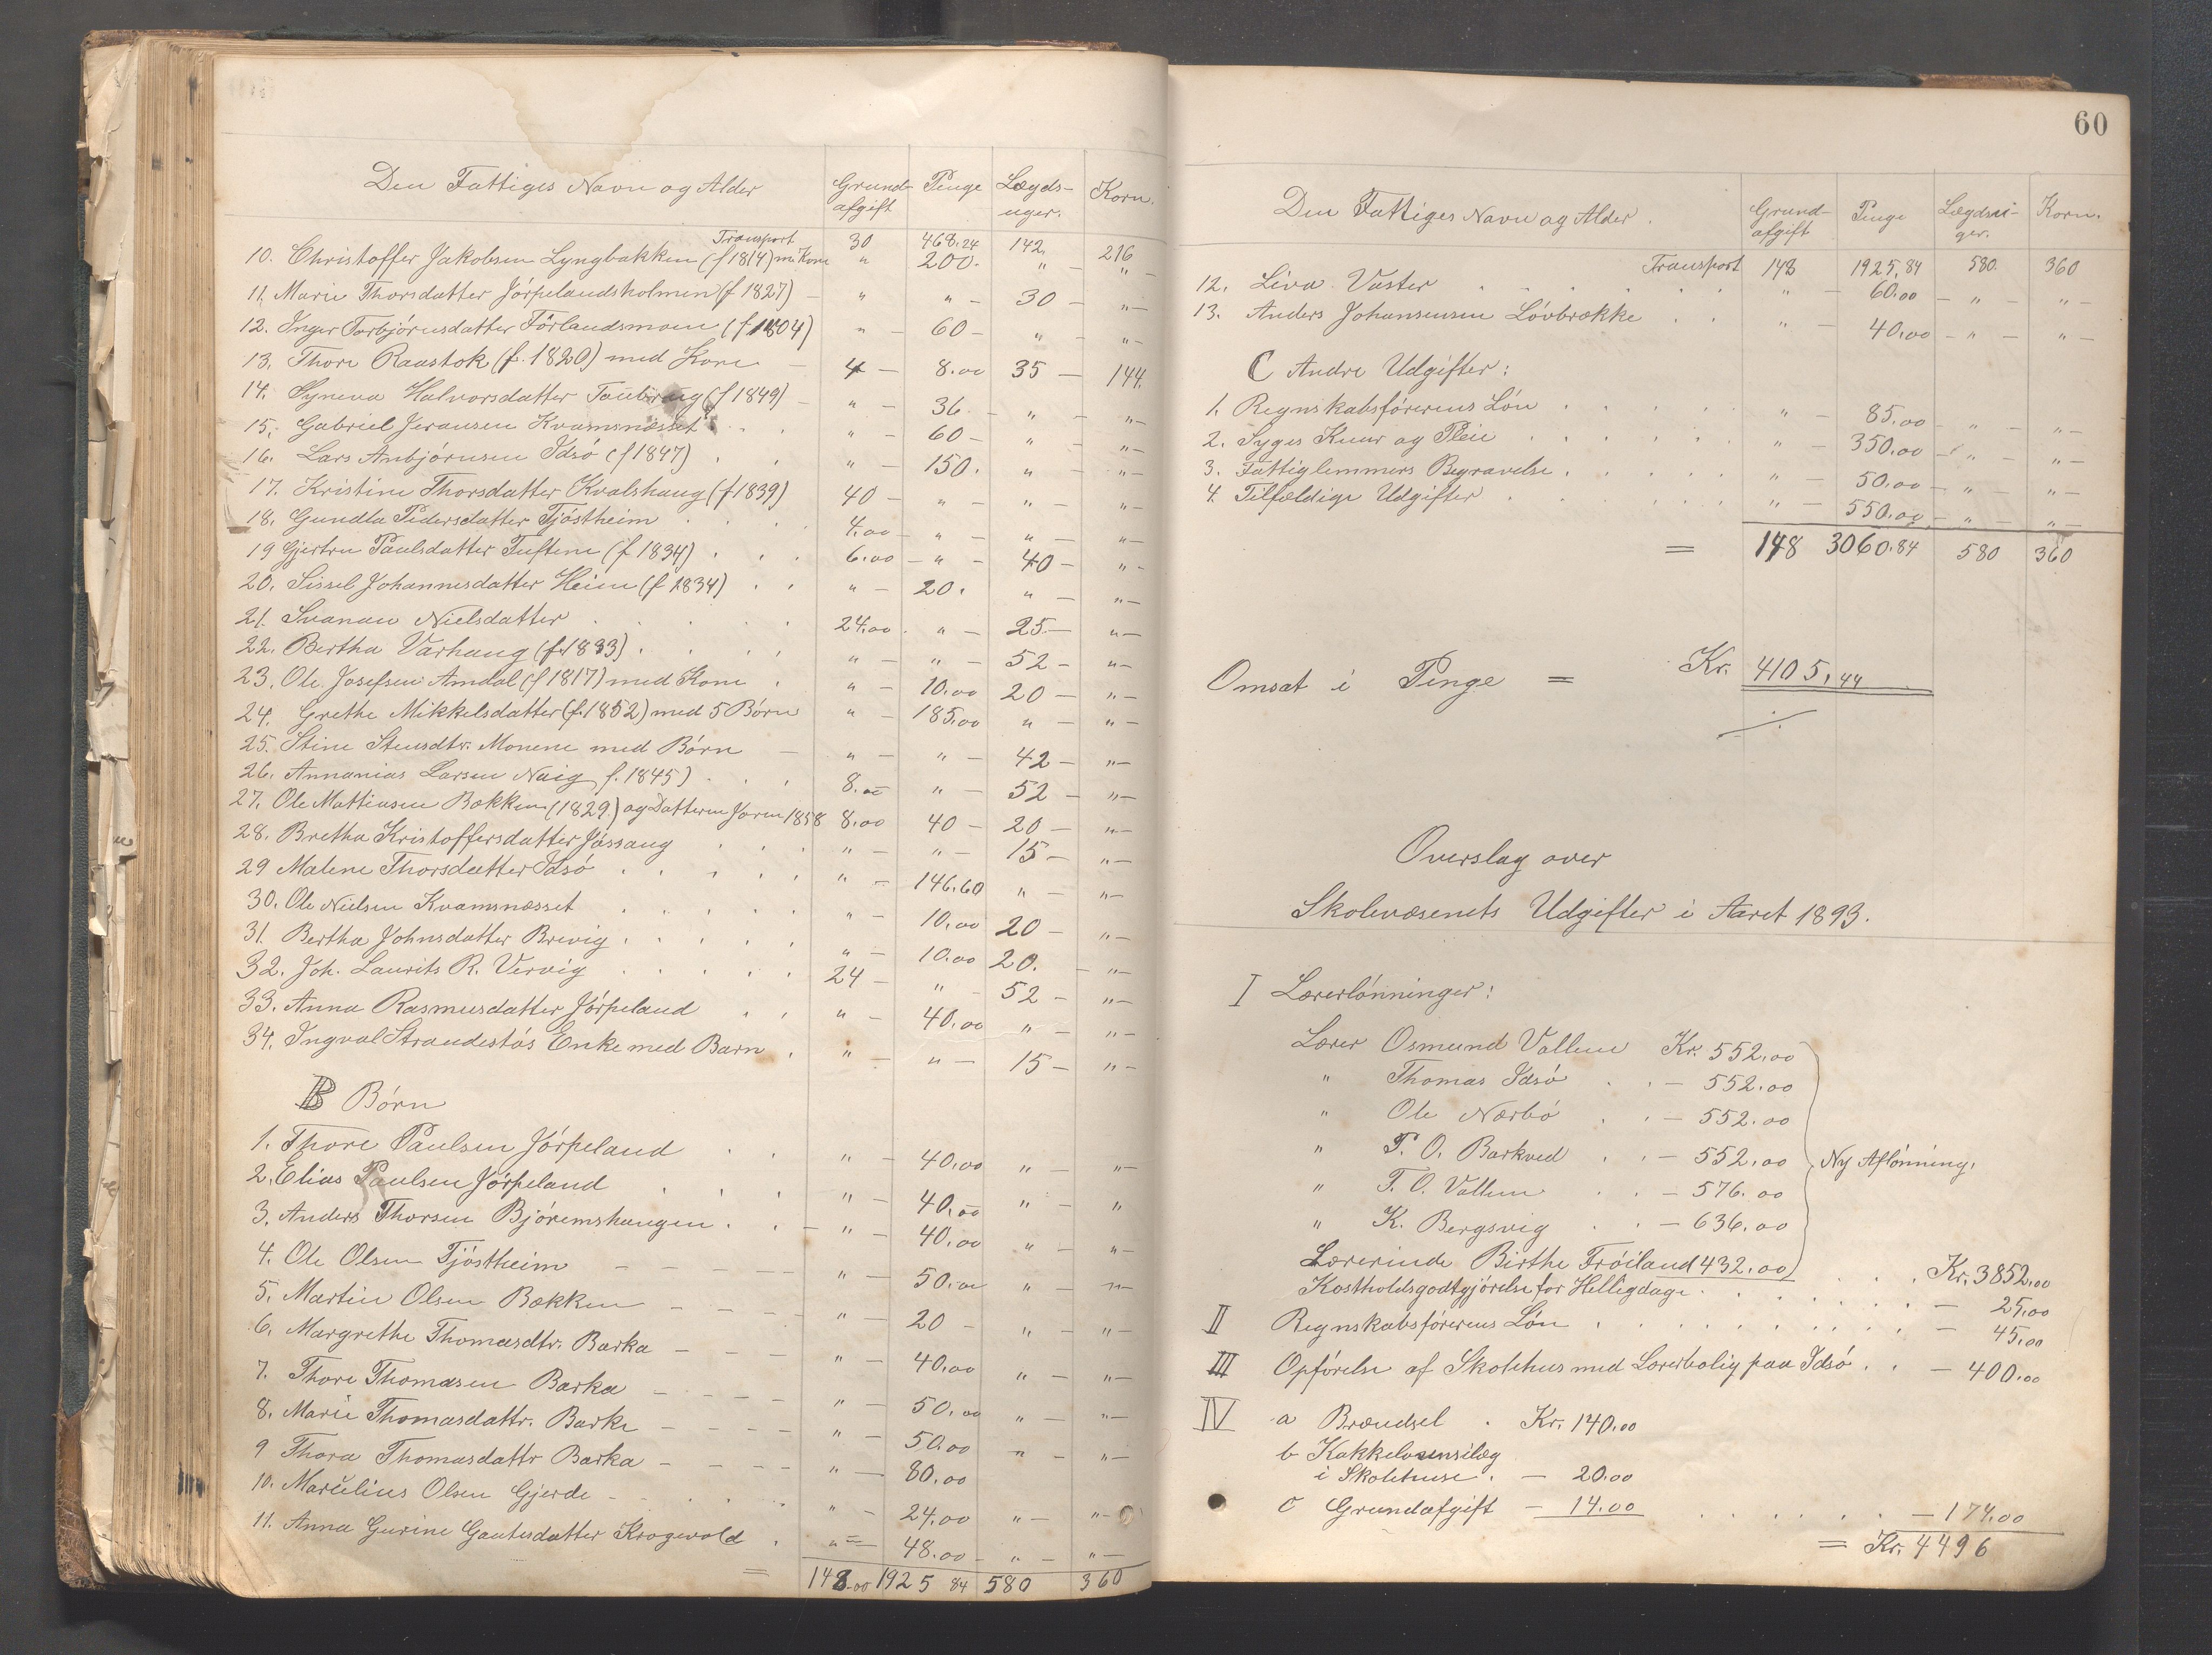 Den Fattiges Navn og Alder Grund- Penge Lægds- Korn.
afgift uger.
Transport 30 468.24 142. 216
10. Christoffer Jakobsen Lyngbakken (f 1814) m. Kone " 200. " – " –
11. Marie Thorsdatter Jørpelandsholmen (f 1827) – " " – 30 – " –
12. Inger Torbjørnsdatter Førlandsmoen (f 1804) " – 60 – " – " –
13. Thore Raastok (f. 1820) med Kone – 4 – 8.00 35 – 144.
14. Syneva Halvorsdatter (f 1849) – " – 36. – " – " –
15. Gabriel Jeransen Kvamsnæsset . . " – 60 – " – " –
16. Lars Anbjørnsen Idsø (f 1847) . . " – 150. " – " –
17. Kristine Thorsdatter Kvalshaug (f 1839) 40 – " – " – " –
18. Gundla Pedersdatter Tjøstheim . . . 4.00 – " – " – " –
19 Gjertru Paulsdatter Tuftene (f 1834) . . . 6.00 – " – 40 – " –
20. Sissel Johannesdatter Heien (f 1834) . . " – 20. " – " –
21. Svanau Nielsdatter . . . . 24.00 . " – 25. – " –
22. Bertha Varhaug (f. 1833) . . . . " – " – 52 – " –
23. Ole Josefsen Amdal (f 1817) med Kone . " – 10.00 20 – " –
24. Grethe Mikkelsdatter (f. 1852) med 5 Børn " – 185.00 " – " –
25. Stine Stensdtr. Monene med Børn – " – " – 42 – " –
26. Annanias Larsen Naig f. 1845) . . . 8.00 " – 52 – " –
27. Ole Mathiasen Bækken (1829.) og Datteren Joren 1858 8.00 40 – 20 – " –
28. Bretha Kristoffersdatter Jøssang . . . " – " – 15 – " –
29 Malene Thorsdatter Idsø . . . . . " – 146.60 " – " –
30. Ole Nielsen Kvamsnæsset . . . . . " – 10.00 20 – " –
31. Bertha Johnsdatter Brevig . . . . . " – 10.00 20. – " –
32. Joh. Laurits R. Vervig . . . . . 24 – " – 52 – " –
33. Anna Rasmusdatter Jørpeland . . " – 40.00 " – " –
34. Ingval Strandestøs Enke med Barn . " – " – 15 – " –
B Børn
1. Thore Paulsen Jørpeland . . " – 40.00 " – " –
2. Elias Paulsen Jørpeland . . . . " – 40.00 " – "
3. Anders Thorsen Bjøremshaugen . . – " – 40.00 " – " –
4. Ole Olsen Tjøstheim – – – – – " – 50.00 " – " –
5. Martin Olsen Bækken – – – – " – 20 – " – " –
6. Margrethe Thomasdtr. Barka – – – " – 40.00 " – " –
7. Thore Thomasen Barka – – – – " – 50.00 " – " –
8. Marie Thomasdattr. Barke – – – – " – 50.00 " – " –
9 Thora Thomasdattr Barka – – – – " – 80.00
10. Marselius Olsen Gjerde – . . . " – 24.00 " – " –
11. Anna Gurine Gautesdatter Krogevold . " – 48.00 – " – " –
= 148.00 1925 84 580 360
60
Den Fattiges Navn og Alder. Grund- Penge Lægdsu- Korn.
afgift ger.
Transport 148 1925,84 580. 360
12. Liva Vaster . . . . . . " – 60.00 – " – " –
13. Anders Johansensen Løvbrække . . " – 40.00 – " – " –
C Andre Udgifter:
1. Regnskabsførerens Løn . . . . . " – 85.00 – " – " –
2. Syges Kuur og Pleie . . . . . . " – 350.00 – " – " –
3. Fattiglemmers Begravelse . . . . . " – 50.00 – " – " –
4. Tilfældige Udgifter . . . . . " – 550.00 – " – " –
= 148 3060.84 580 360
Omsat i Penge = Kr. 4105,44
Overslag over
Skolevæsenets Udgifter i Aaret 1893.
I Lærerlønninger:
Lærer Osmund Vallem Kr. 552.00
" Thomas Idsø . . – 552.00
" Ole Nærbø . . – 552.00
" T. O. Barkved . . – 552.00 Ny Aflønning.
" T. O. Vallem . . – 576.00
" K. Bergsvig . . – 636.00
Lærerinde Birthe Frøiland 432.00 . . . Kr. 3852.00
Kostholdsgodtgjørelse for Helligdage . . . . . . . – 25.00
II Regnskabsførerens Løn . . . . . . . . . – 45.00
III Opførelse af Skolehus med Lærerbolig paa Idsø . . – 400.00
IV a Brændsel . Kr. 140.00
b Kakkelovnsilæg
i Skolehuse . – 20.00
c Grundafgift – 14.00 . . . . . . – 174.00
= Kr. 4496